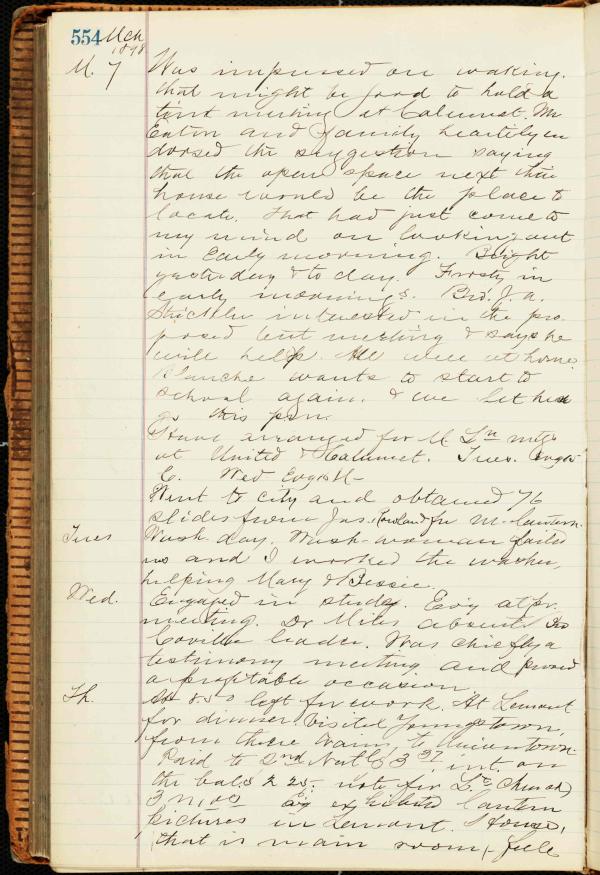 554 Mch
1898
M. 7 Was impressed on waking.
that might be good to hold a
tent meeting at Calumet. Mr
Eaton and family heartily en
dorsed the suggestion saying
that the open space next their
house would be the place to
locate. That had just come to
my mind on looking out
in early morning. Bright
yesterday & to day. Frosty in
early mornings. Bro. J. A.
Strickler interested in the pro
posed tent meeting & says he
will help. All well at home.
Blanche wants to start to
school again. & we let her
go this p.m.
Have arranged for M Ln mtgs
at United & Calumet. Tues.
C. Wed Evgs
Went to city and obtained 76
slides from Jas. Rowland for M. lantern.
Tues Wash day. Wash-woman failed
us and I worked the washer,
helping Mary & Bessie.
Wed. Engaged in study. Ev'g at pr.
meeting. Dr Miles absent. Bro
Coville leader. Was chiefly a
testimony meeting and proved
a profitable occasion.
Th. At 8.50 left for work. At Lemont
for dinner. Visited Youngstown,
from there train to Uniontown.
Paid to 2nd Natl int. on
the bal. note for Church
Ev'g exhibited lantern
pictures in Lemont. House,
that is main room, full